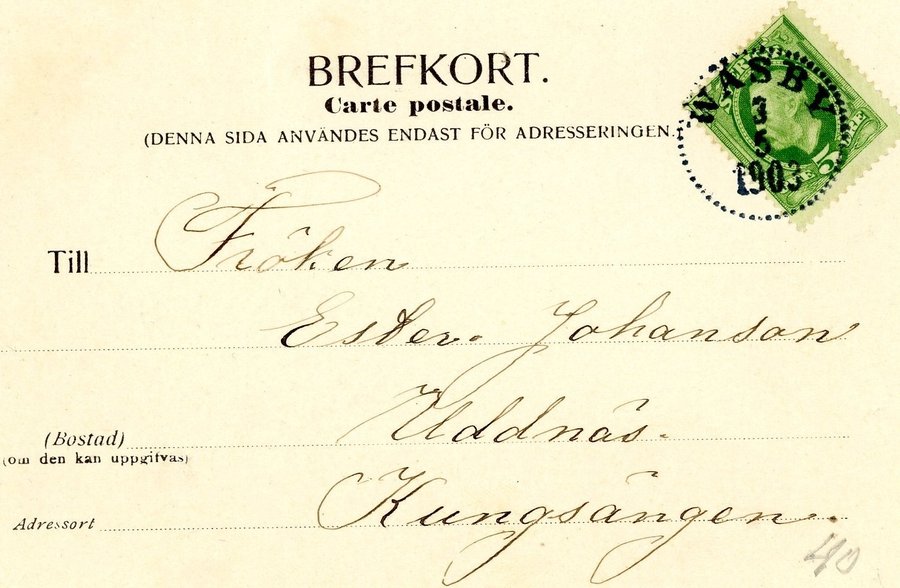 BREFKORT.
Carte postale.
(DENNA SIDA ANVÄNDES ENDAST FÖR ADRESSERINGEN.)
WÄSBY
3
5
1903
Till Fröken
Ester Johanson
(Bostad) Uddnäs.
(om den kan uppgifvas)
Adressort Kungsängen.
40